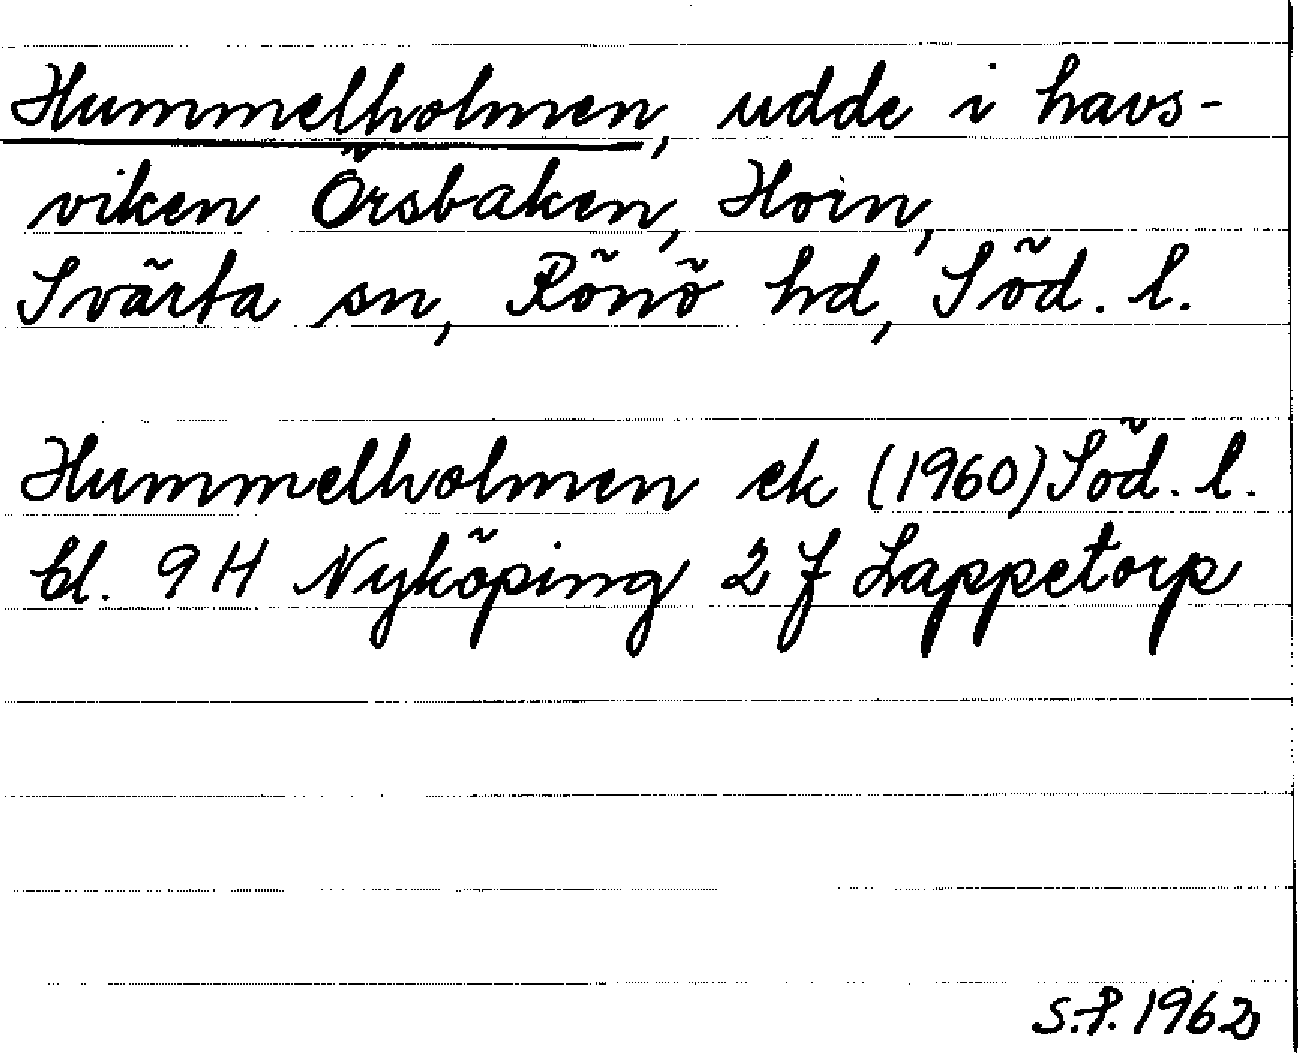 Hummelholmen, udde i havs-
viken Örsbaken, Hoin,
Svärta sn, Rönö hd, Söd. l.
Hummelholmen ek (1960) Söd. l.
bl. 9 H Nyköping 2 f Lappetorp
S.P. 1962